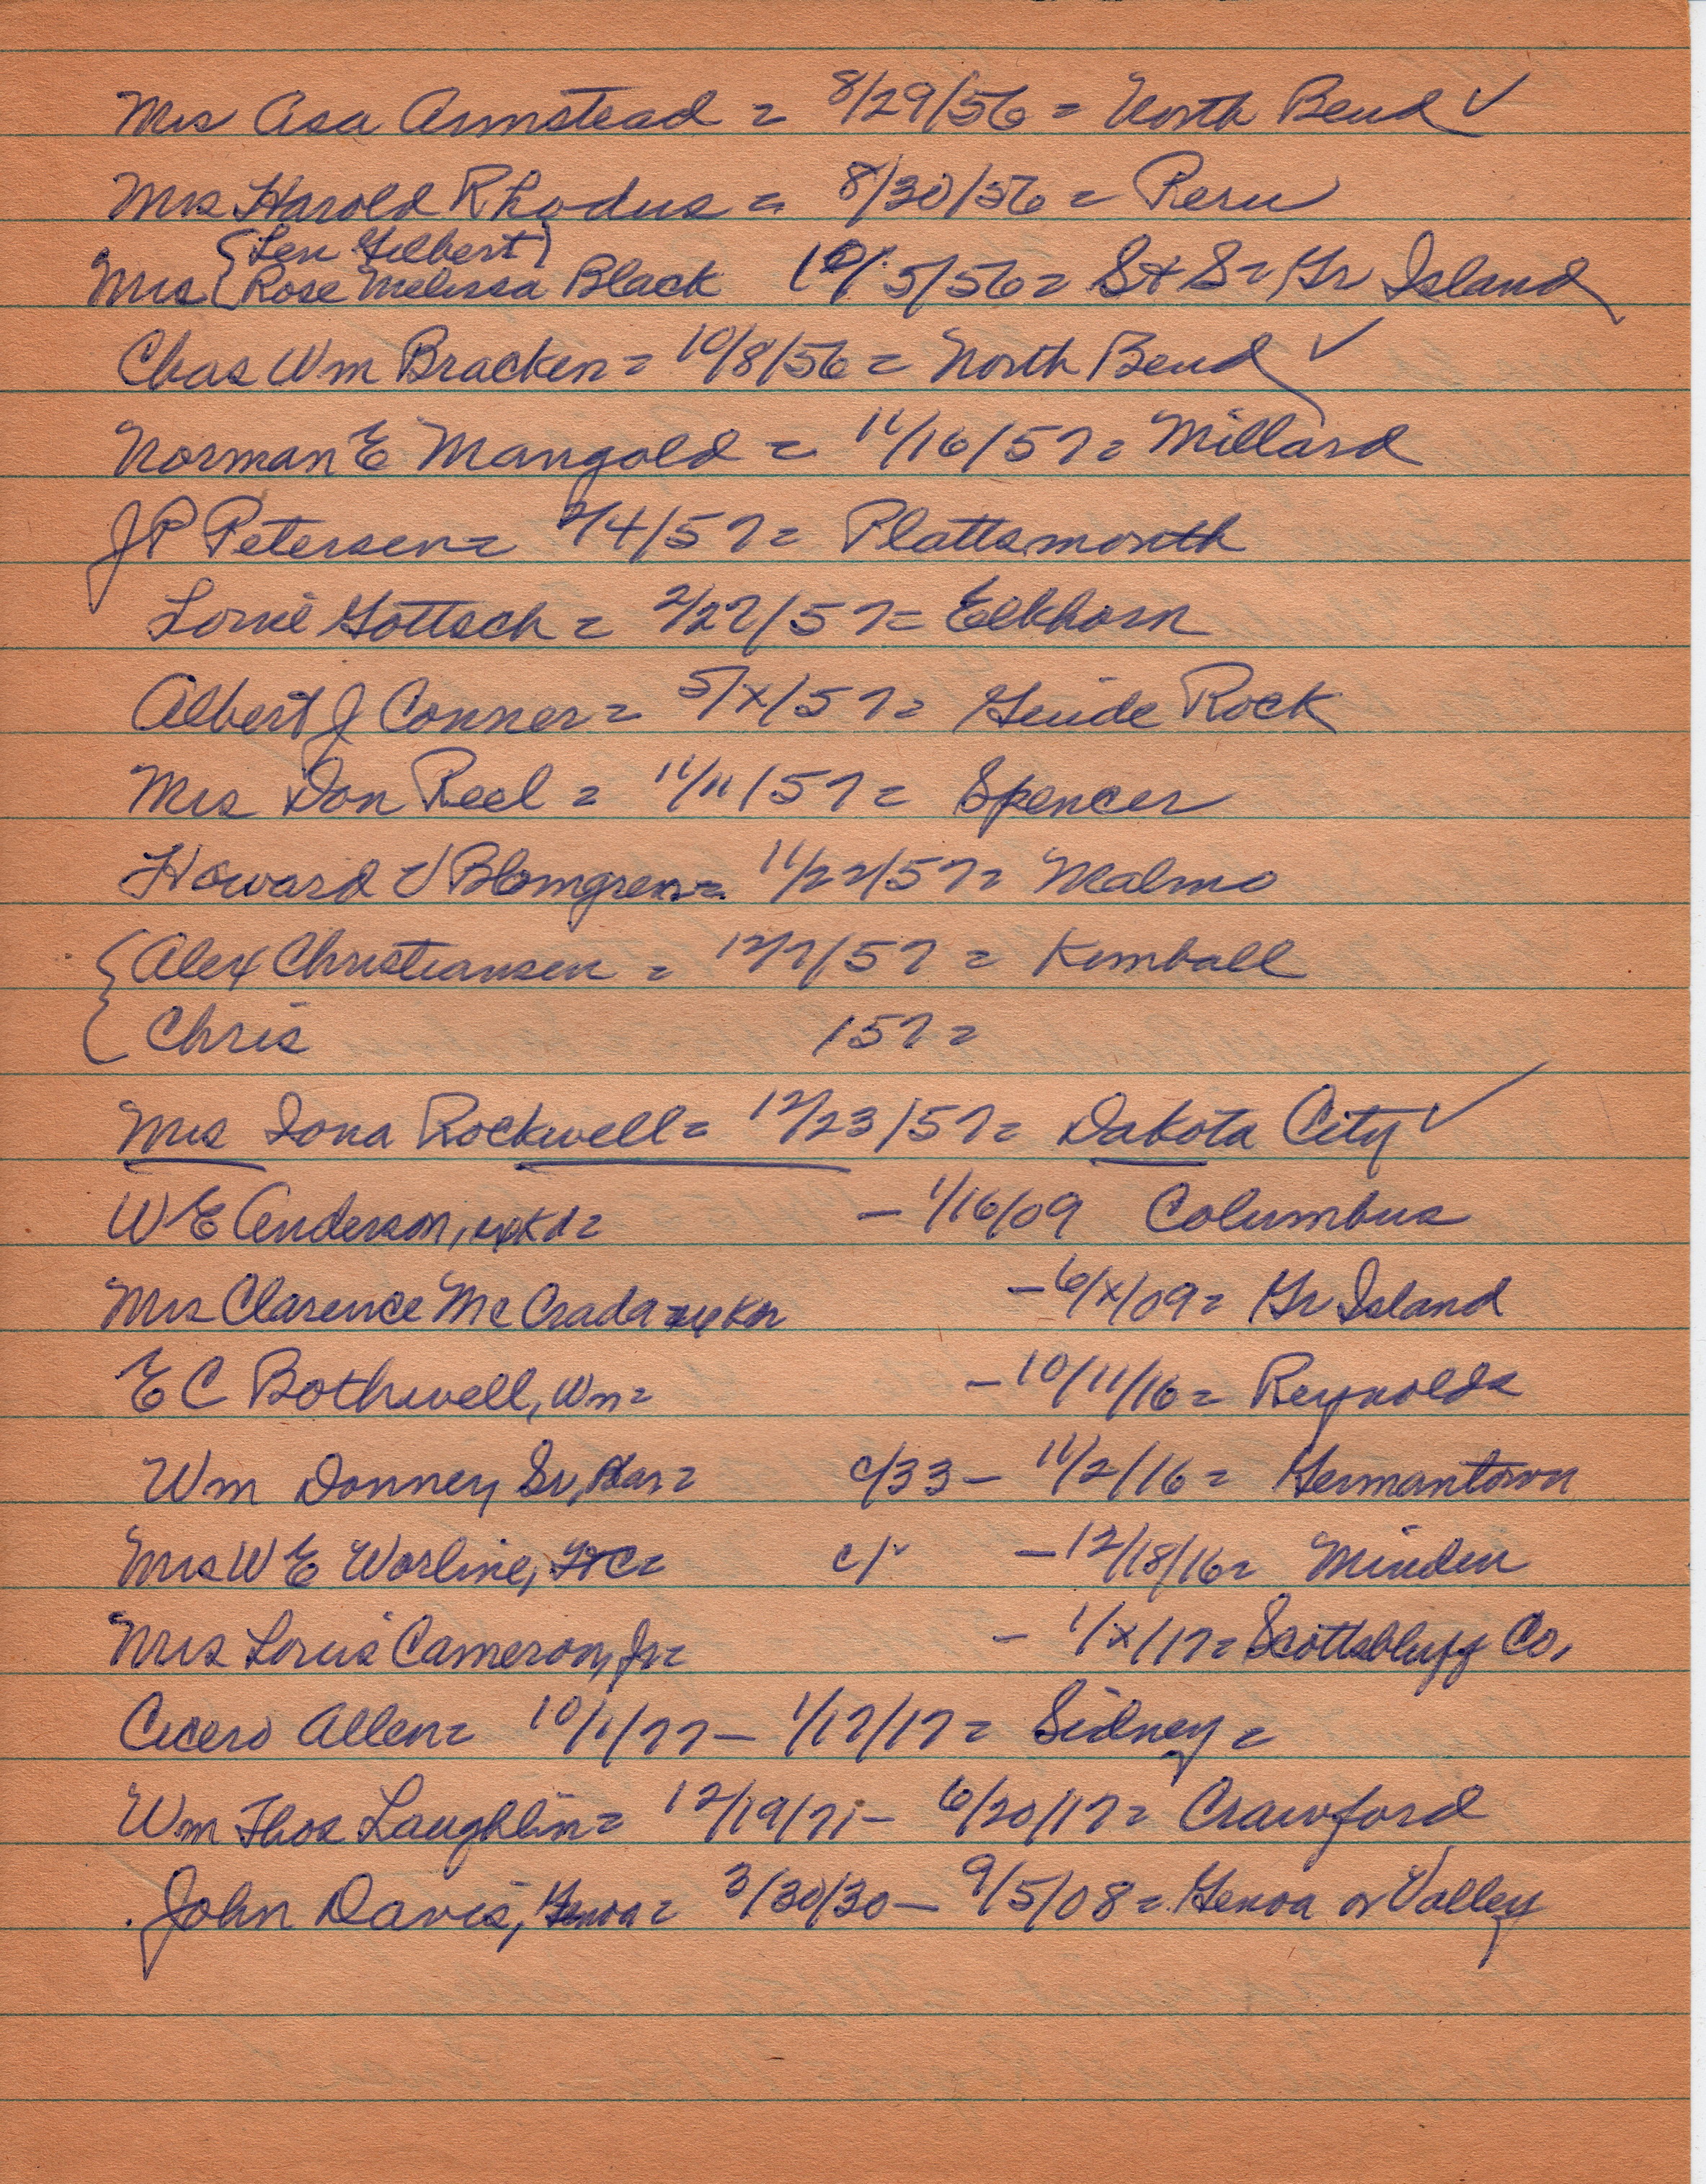 Mrs Asa Armstead = 8/29/56 = North Bend ✓
Mrs Harold Rhodus = 8/30/56 = Peru
{Len Gilbert}
Mrs {Rose Melissa Black 10/5/56 = S & S = Gr Island
Chas Wm Bracken = 10/8/56 = North Bend ✓
Norman E Mangold = 11/16/57 = Millard
J P Petersen = 2/4/57 = Plattsmouth
Louie Gottsch = 2/27/57 = Elkhorn
Albert J Conner = 5/x/57 = Guide Rock
Mrs Don Reel = 11/11/57 = Spencer
Howard V Blomgren = 11/22/57 = Malmo
{ Alex Christiansen = 12/7/57 = Kimball
{ Chris /57 =
Mrs Iona Rockwell = 12/23/57 = Dakota City ✓
W E Anderson, = – 1/16/09 Columbus
Mrs Clarence McCrada – 6/x/09 = Gr Island
E C Bothwell, Wm = – 10/11/16 = Reynolds
Wm Donney Sr, = c/33 – 11/2/16 = Germantown
Mrs W E Worline, = c/ – 12/18/16 = Minden
Mrs Louis Cameron, Jr = – 1/x/17 = Scottsbluff Co,
Cicero Allen = 10/1/77 – 1/17/17 = Sidney =
Wm Thos Laughlin = 12/19/71 – 6/20/17 = Crawford
John Davis, Genoa = 3/30/30 – 9/5/08 = Genoa or Valley